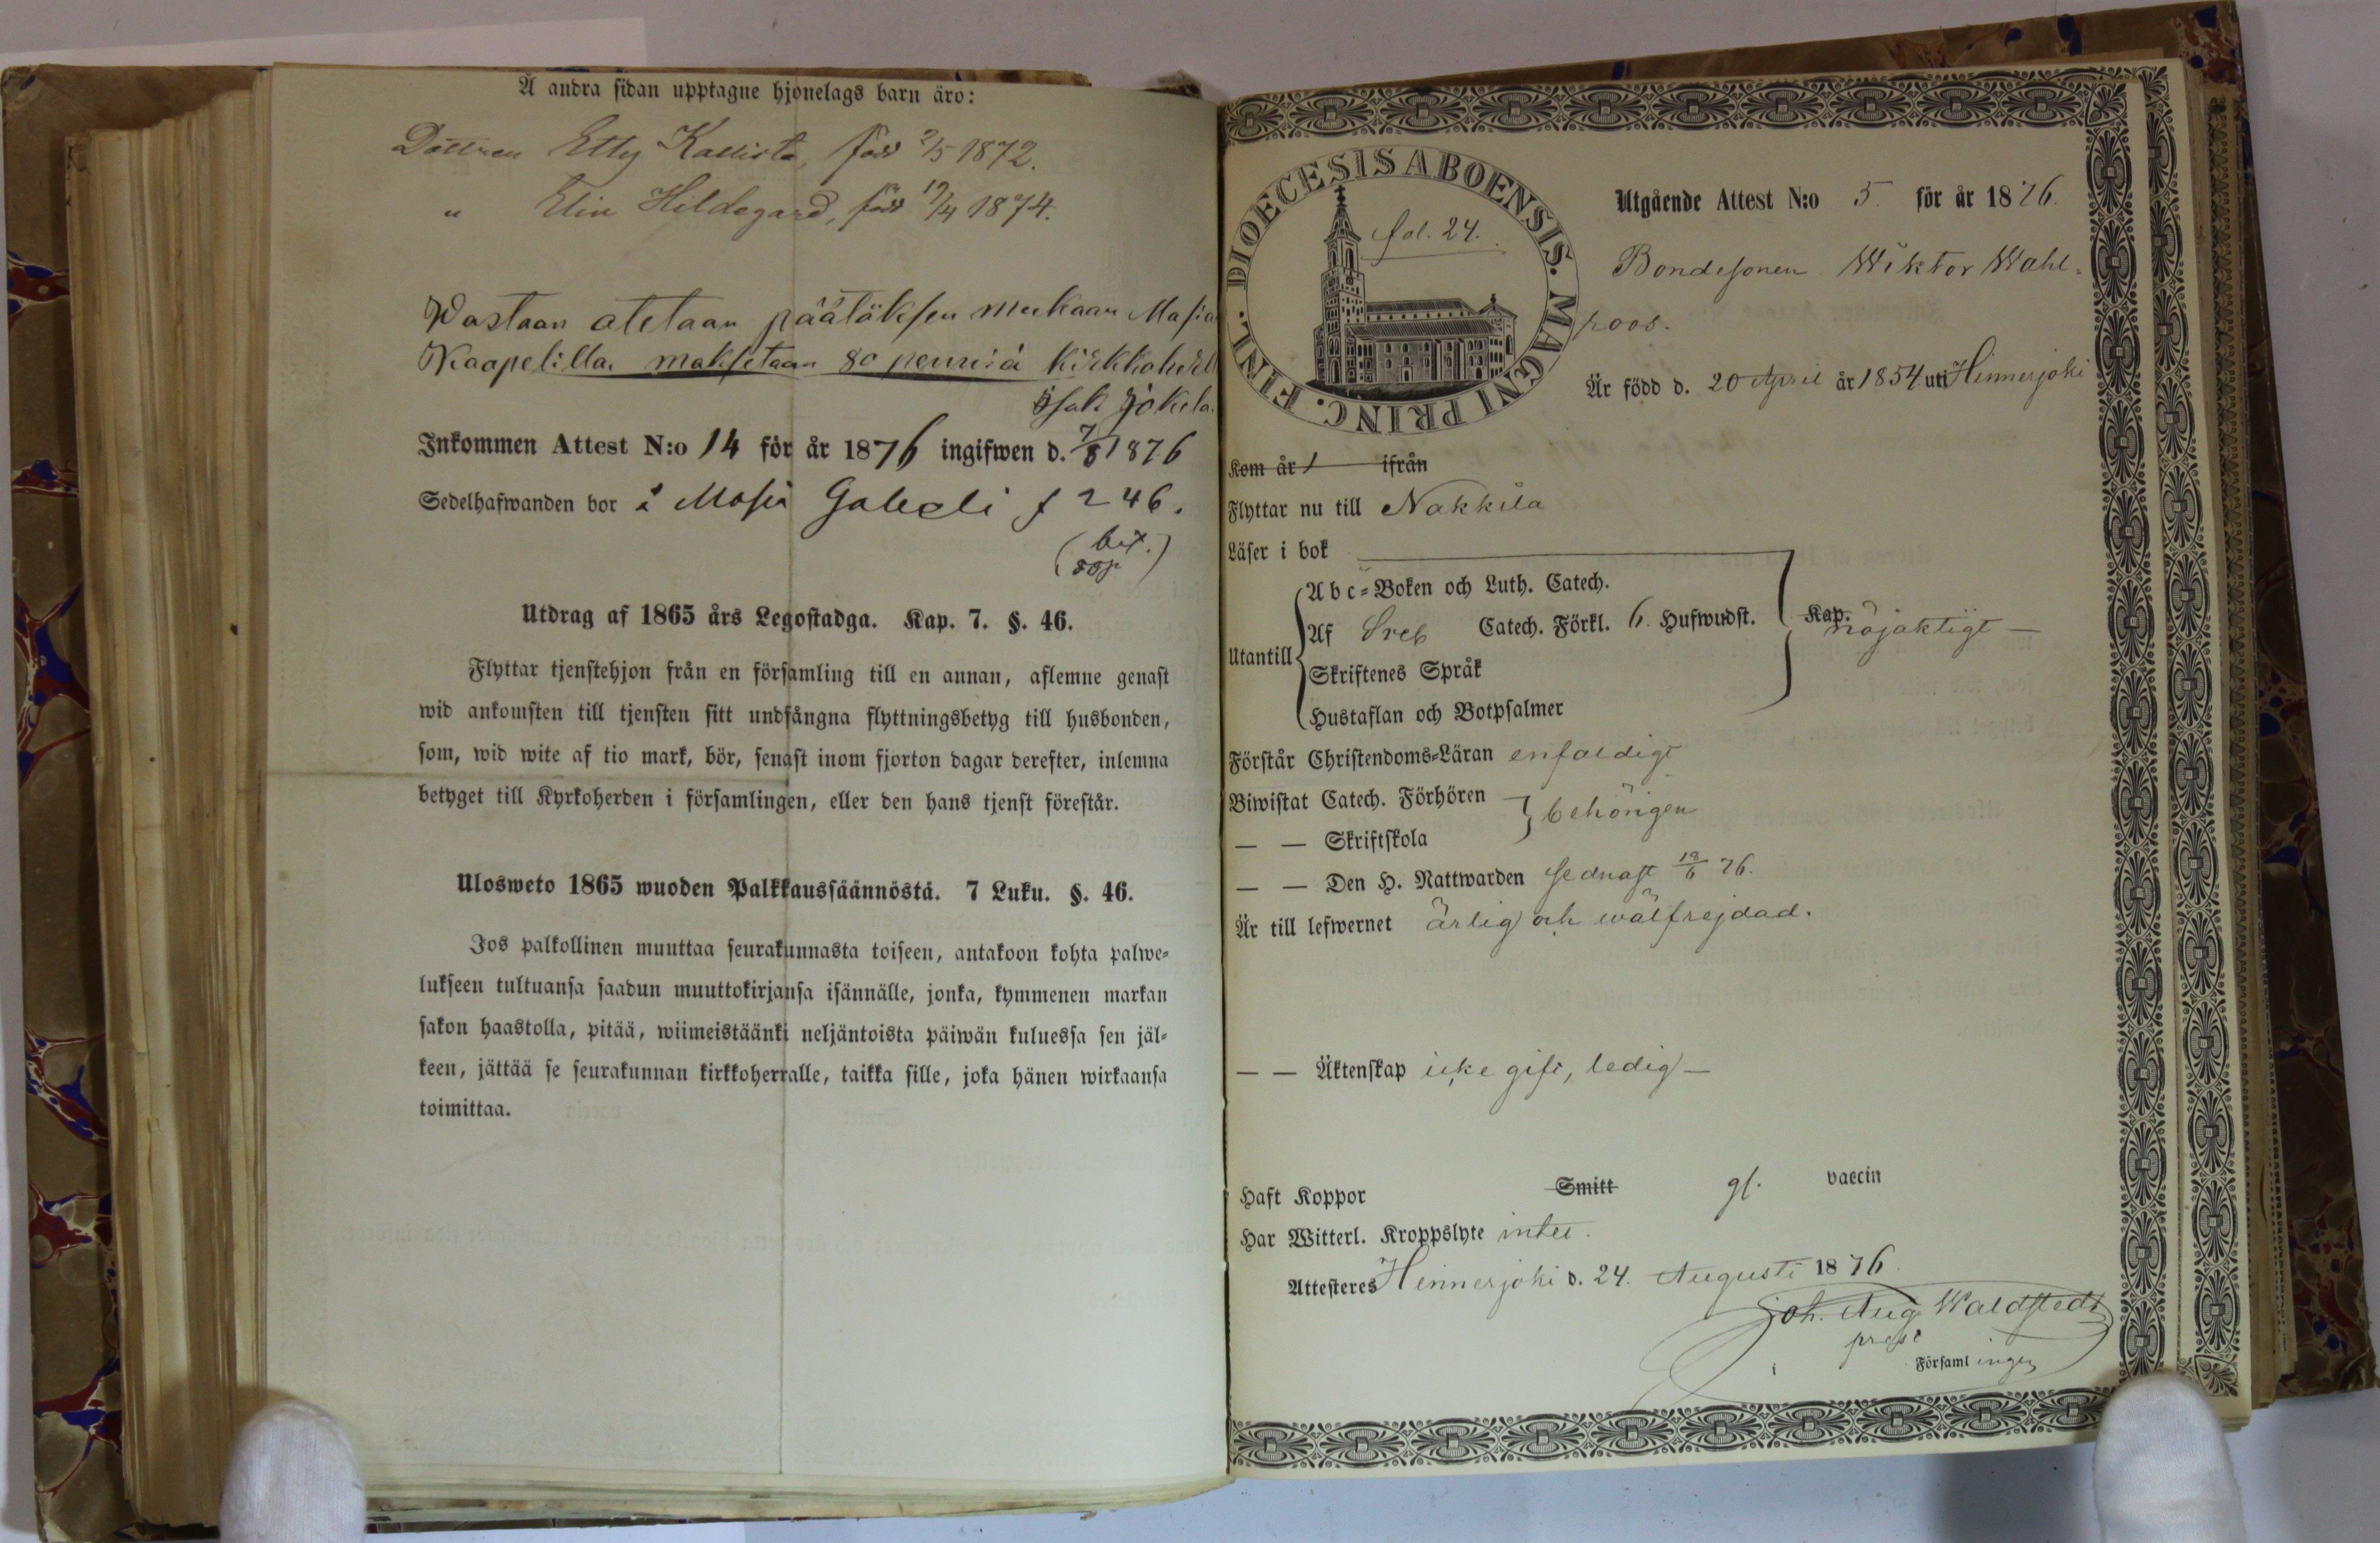 Å andra sidan upptagne hjonelags barn äro:
Dottren Etty Kallista, född 2/5 1872.
" Elin Hildegard, född 19/4 1874.
Wastaan otetaan päätöksen mukaan Masia
Kaapelilla. maksetaan 80 penniä kirkkoherl
Isak Jokela.
Inkommen Attest N:o 14 för år 1876 ingifwen d. 7/8 1876
Sedelhafwanden bor å Masia Gabeli f 246.
(bet.
80 p)
Utdrag af 1865 års Legostadga. Kap. 7. §. 46.
Flyttar tjenstehjon från en församling till en annan, aflemne genast
wid ankomsten till tjensten sitt undfångna flyttningsbetyg till husbonden,
som, wid wite af tio mark, bör, senast inom fjorton dagar derefter, inlemna
betyget till Kyrkoherden i församlingen, eller den hans tjenst förestår.
Ulosweto 1865 wuoden Palkkaussäännöstä. 7 Luku. §. 46.
Jos palkollinen muuttaa seurakunnasta toiseen, antakoon kohta palwe-
lukseen tultuansa saadun muuttokirjansa isännälle, jonka, kymmenen markan
sakon haastolla, pitää, wiimeistäänki neljäntoista päiwän kuluessa sen jäl-
keen, jättää se seurakunnan kirkkoherralle, taikka sille, joka hänen wirkaansa
toimittaa.
DIOECESIS ABOENSIS. MAGNI PRINC. FINL.
fol. 24.
Utgående Attest N:o 5. för år 1876.
Bondesonen Wiktor Wahl-
roos.
Är född d. 20 April år 1854 uti Hinnerjoki
Kom år 1 ifrån
Flyttar nu till Nakkila
Läser i bok
Utantill
Abc-Boken och Luth. Catech.
Af Sveb Catech. Förkl. 6. Hufwudst. Kap. nöjaktigt —
Skriftenes Språk
Hustaflan och Botpsalmer
Förstår Christendoms-Läran enfaldigt
Biwistat Catech. Förhören
— — Skriftskola behörigen
— — Den H. Nattwarden sednast 18/6 76.
Är till lefwernet ärlig och wälfrejdad.
— — Äktenskap icke gift, ledig —
Haft Koppor Smitt gl. vaccin
Har Witterl. Kroppslyte intet.
Attesteres Hinnerjoki d. 24. Augusti 1876.
Joh. Aug. Waldstedt
prest
i Församlingen